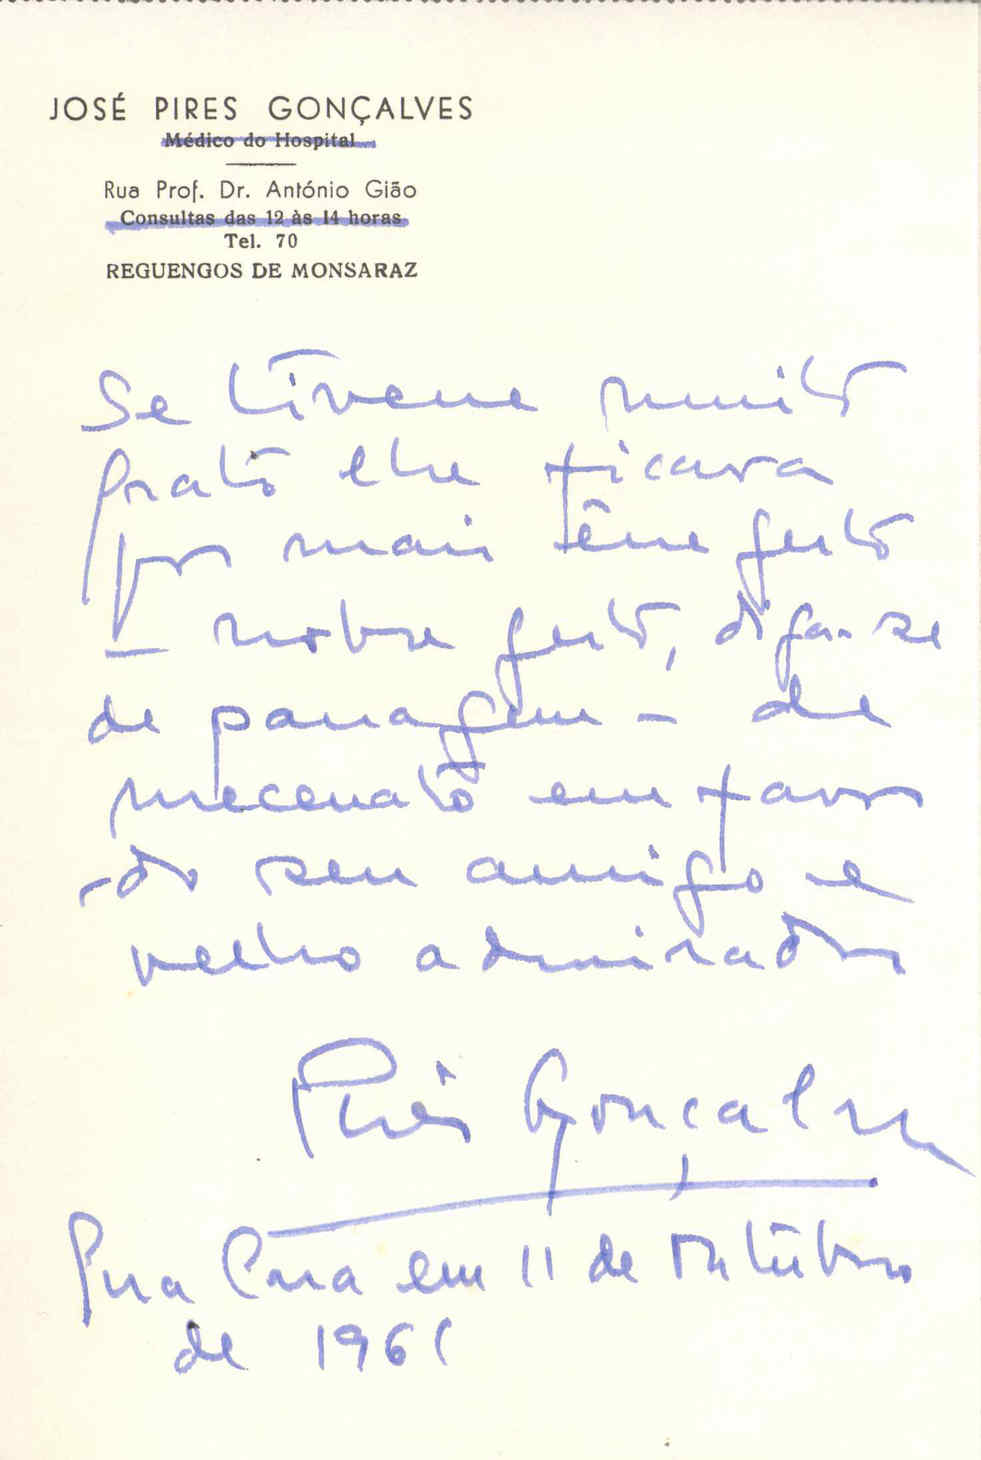 JOSÉ PIRES GONÇALVES
Médico do Hospital
Rua Prof. Dr. António Gião
Consultas das 12 às 14 horas
Tel. 70
REGUENGOS DE MONSARAZ
Se tivesse muito
grato lhe ficava
por mais êsse gesto
— nobre gesto, diga-se
de passagem — de
mecenato em favor
do seu amigo e
velho admirador
Pires Gonçalves
Sua Casa em 11 de Outubro
de 1961